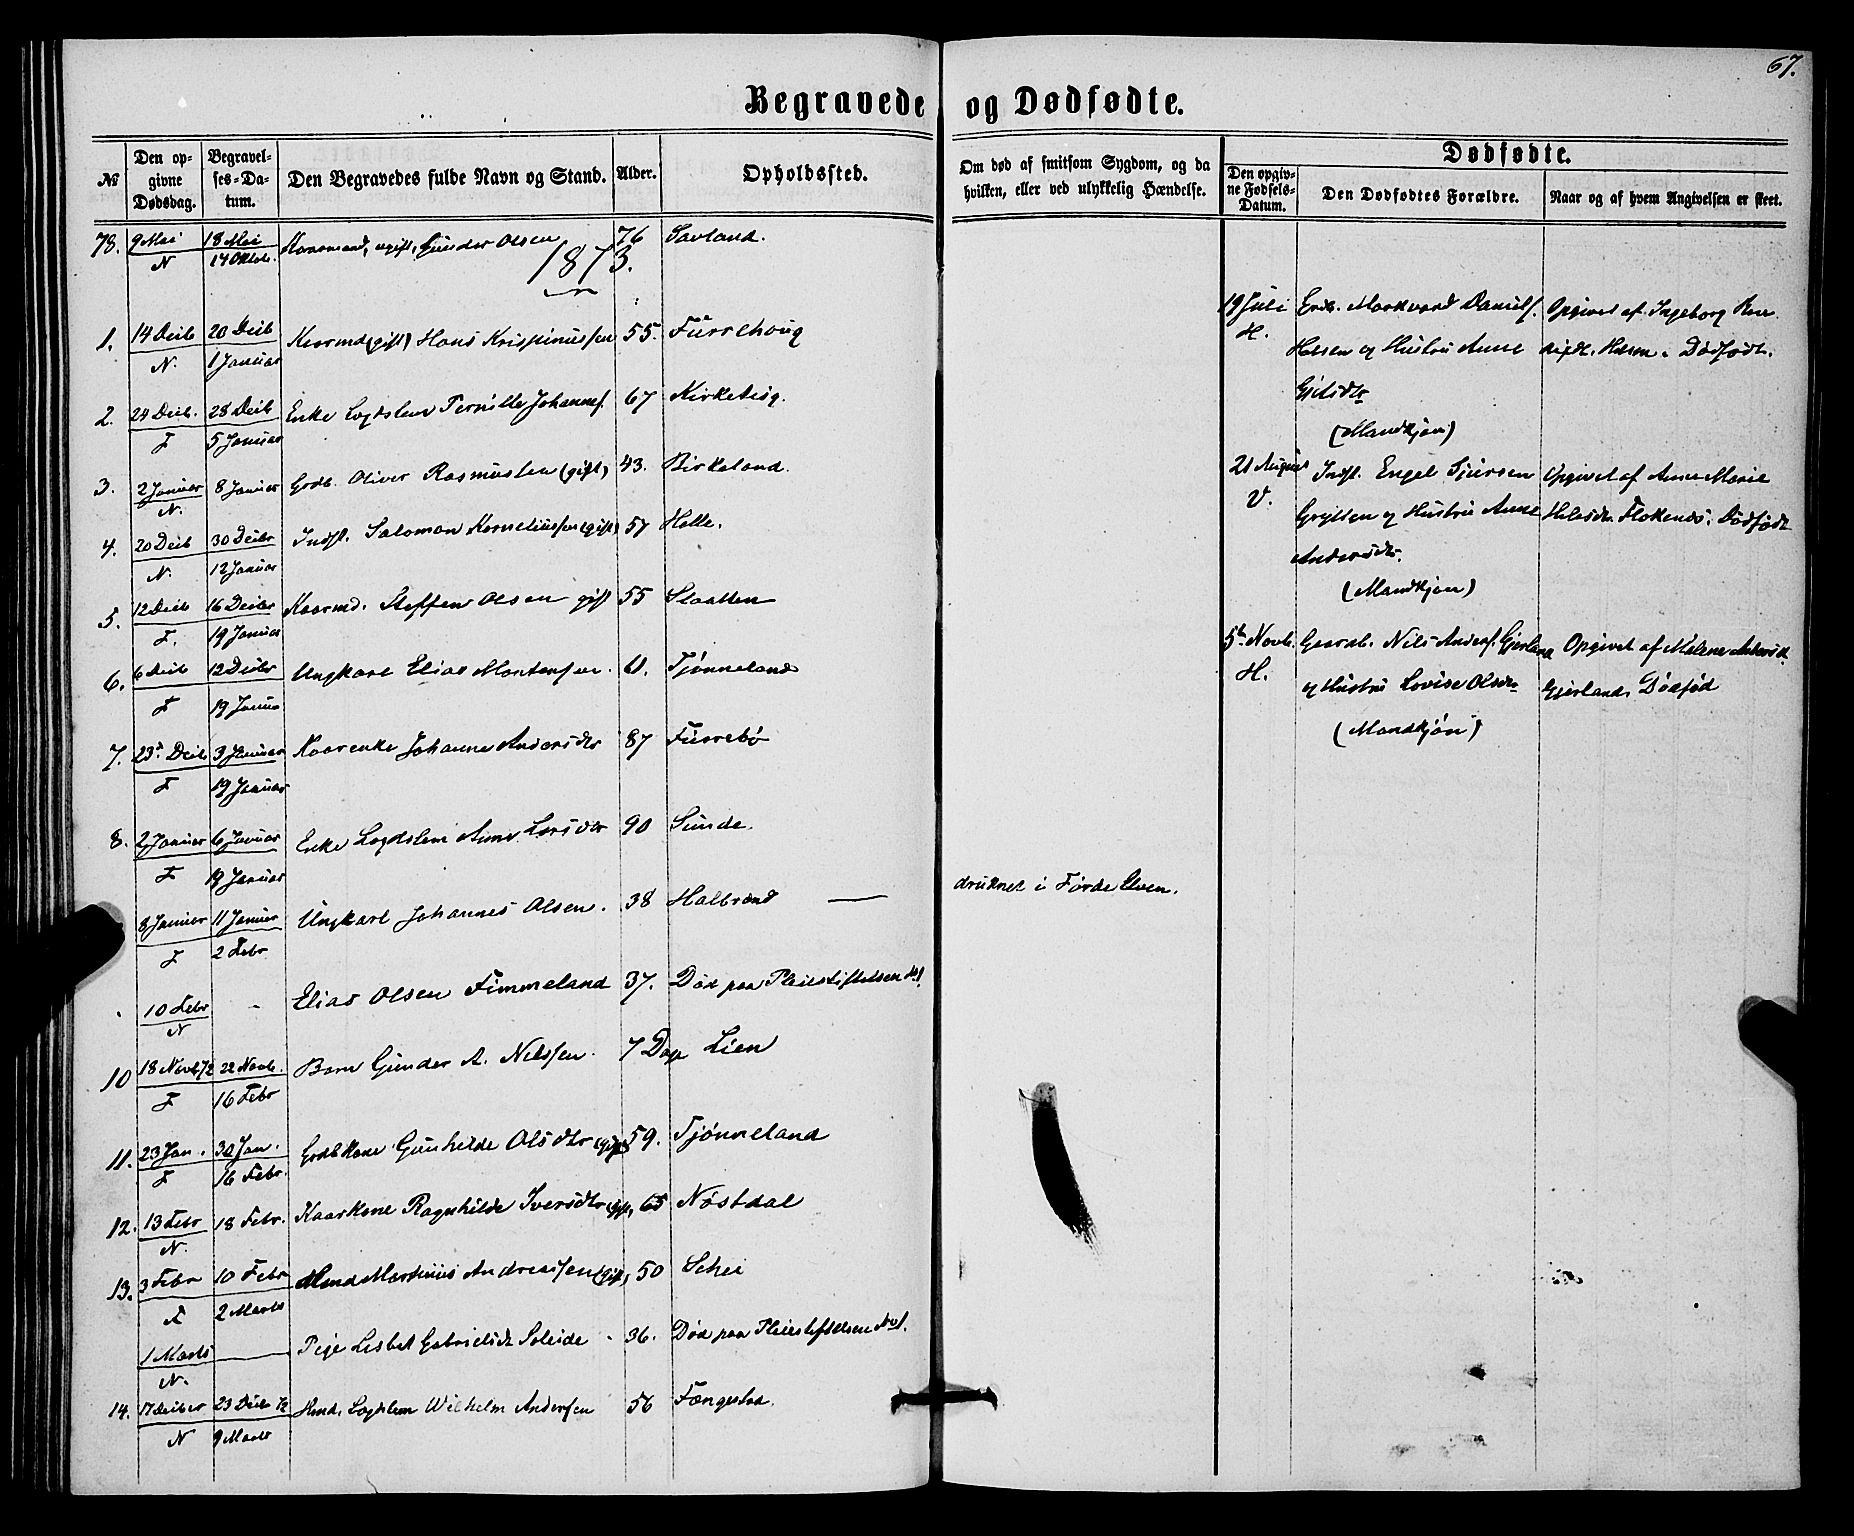 67.
Begravede og Dødfødte.
№
Den opgivne Dødsdag.
Begravelses-Datum.
Den Begravedes fulde Navn og Stand.
Alder.
Opholdssted.
Om død af smitsom Sygdom, og da hvilken, eller ved ulykkelig Hændelse.
Dødfødte.
Den opgivne Fødsels-Datum.
Den Dødfødtes Forældre.
Naar og af hvem Angivelsen er skeet.
78. 9 Mai N 18 Mai 14 Oktob. Kaarmand, ugift, Gunder Olsen 76 Savland.
1873.
1. 14 Decb N. 20 Decb 1 Januar Kaarmd (gift) Hans Krispinussen 55. Furrehoug
2. 24 Decb. F 28 Decb 5 Januar Enke Lægdslem Pernille Johannes. 67 Kirketeig.
3. 2 Januar N. 8 Januar Grdb. Oliver Rasmussen (gift) 43. Birkeland.
4. 20 Decb N. 30 Decbr 12 Januar Indst. Salomon Korneliussen (gift) 57 Holle.
5. 12 Decb F. 16 Decbr 19 Januar Kaarmd. Steffen Olsen gift 55 Slaatten
6. 6 Decb F 12 Decbr 19 Januar Ungkarl Elias Mortensen. 61. Tjønneland
7. 23 Decb F 3 Januar 19 Januar Kaarenke Johanne Andersdtr 87 Furrebø
8. 2 Januar F 6 Januar 19 Januar Enke Lægdslem Anne Larsdtr 90 Sunde.
8 Januar F 11 Januar 2 Febr Ungkarl Johannes Olsen. 38 Halbrend — druknet i Førde Elven.
10 Febr N - Elias Olsen Fimmeland 37. Død paa Pleiestiftelsen No 1.
10 18 Novb 72 F 22 Novb. 16 Febr Barn Gunder A. Nilssen. 7 Dage Lien
11. 23 Jan. F 30 Jan. 16 Febr. Grdb Kone Gunhilde Olsdtr (gift) 59. Tjønneland
12. 13 Febr N. 18 Febr. Kaarkone Ragnhilde Iversdtr (gift) 65 Nøstdal
13. 3 Febr F 10 Febr 2 Marts Hmd Martinus Andreassen (gift) 50 Schei
1 Marts N. — Pige Lisbet Gabrielsdt Soleide - 36. Død paa Pleiestiftelsen No 1.
14. 17 Decbr N 23 Decb 72 9 Marts Hmd. Lægdslem Wilhelm Andersen 56 Fængestad.
19 Juli H.
Markvard Daniels.
Holsen og Hustru Anne
(Mandkjøn)
Opgivet af Ingeborg
Holsen. Dødfødt.
21 August V.
Indst. Engel Sjursen
Grytten og Hustru Anne
Andersdtr.
(Mandkjøn)
Opgivet af Anne Marie
Flokenes. Dødfødt
5te Novb. H.
Gaardb. Nils Anders. Gjerland
og Hustru Lovise Olsdtr
(Mandkjøn)
Opgivet af Malene Andersdt.
Gjerland. Dødfød